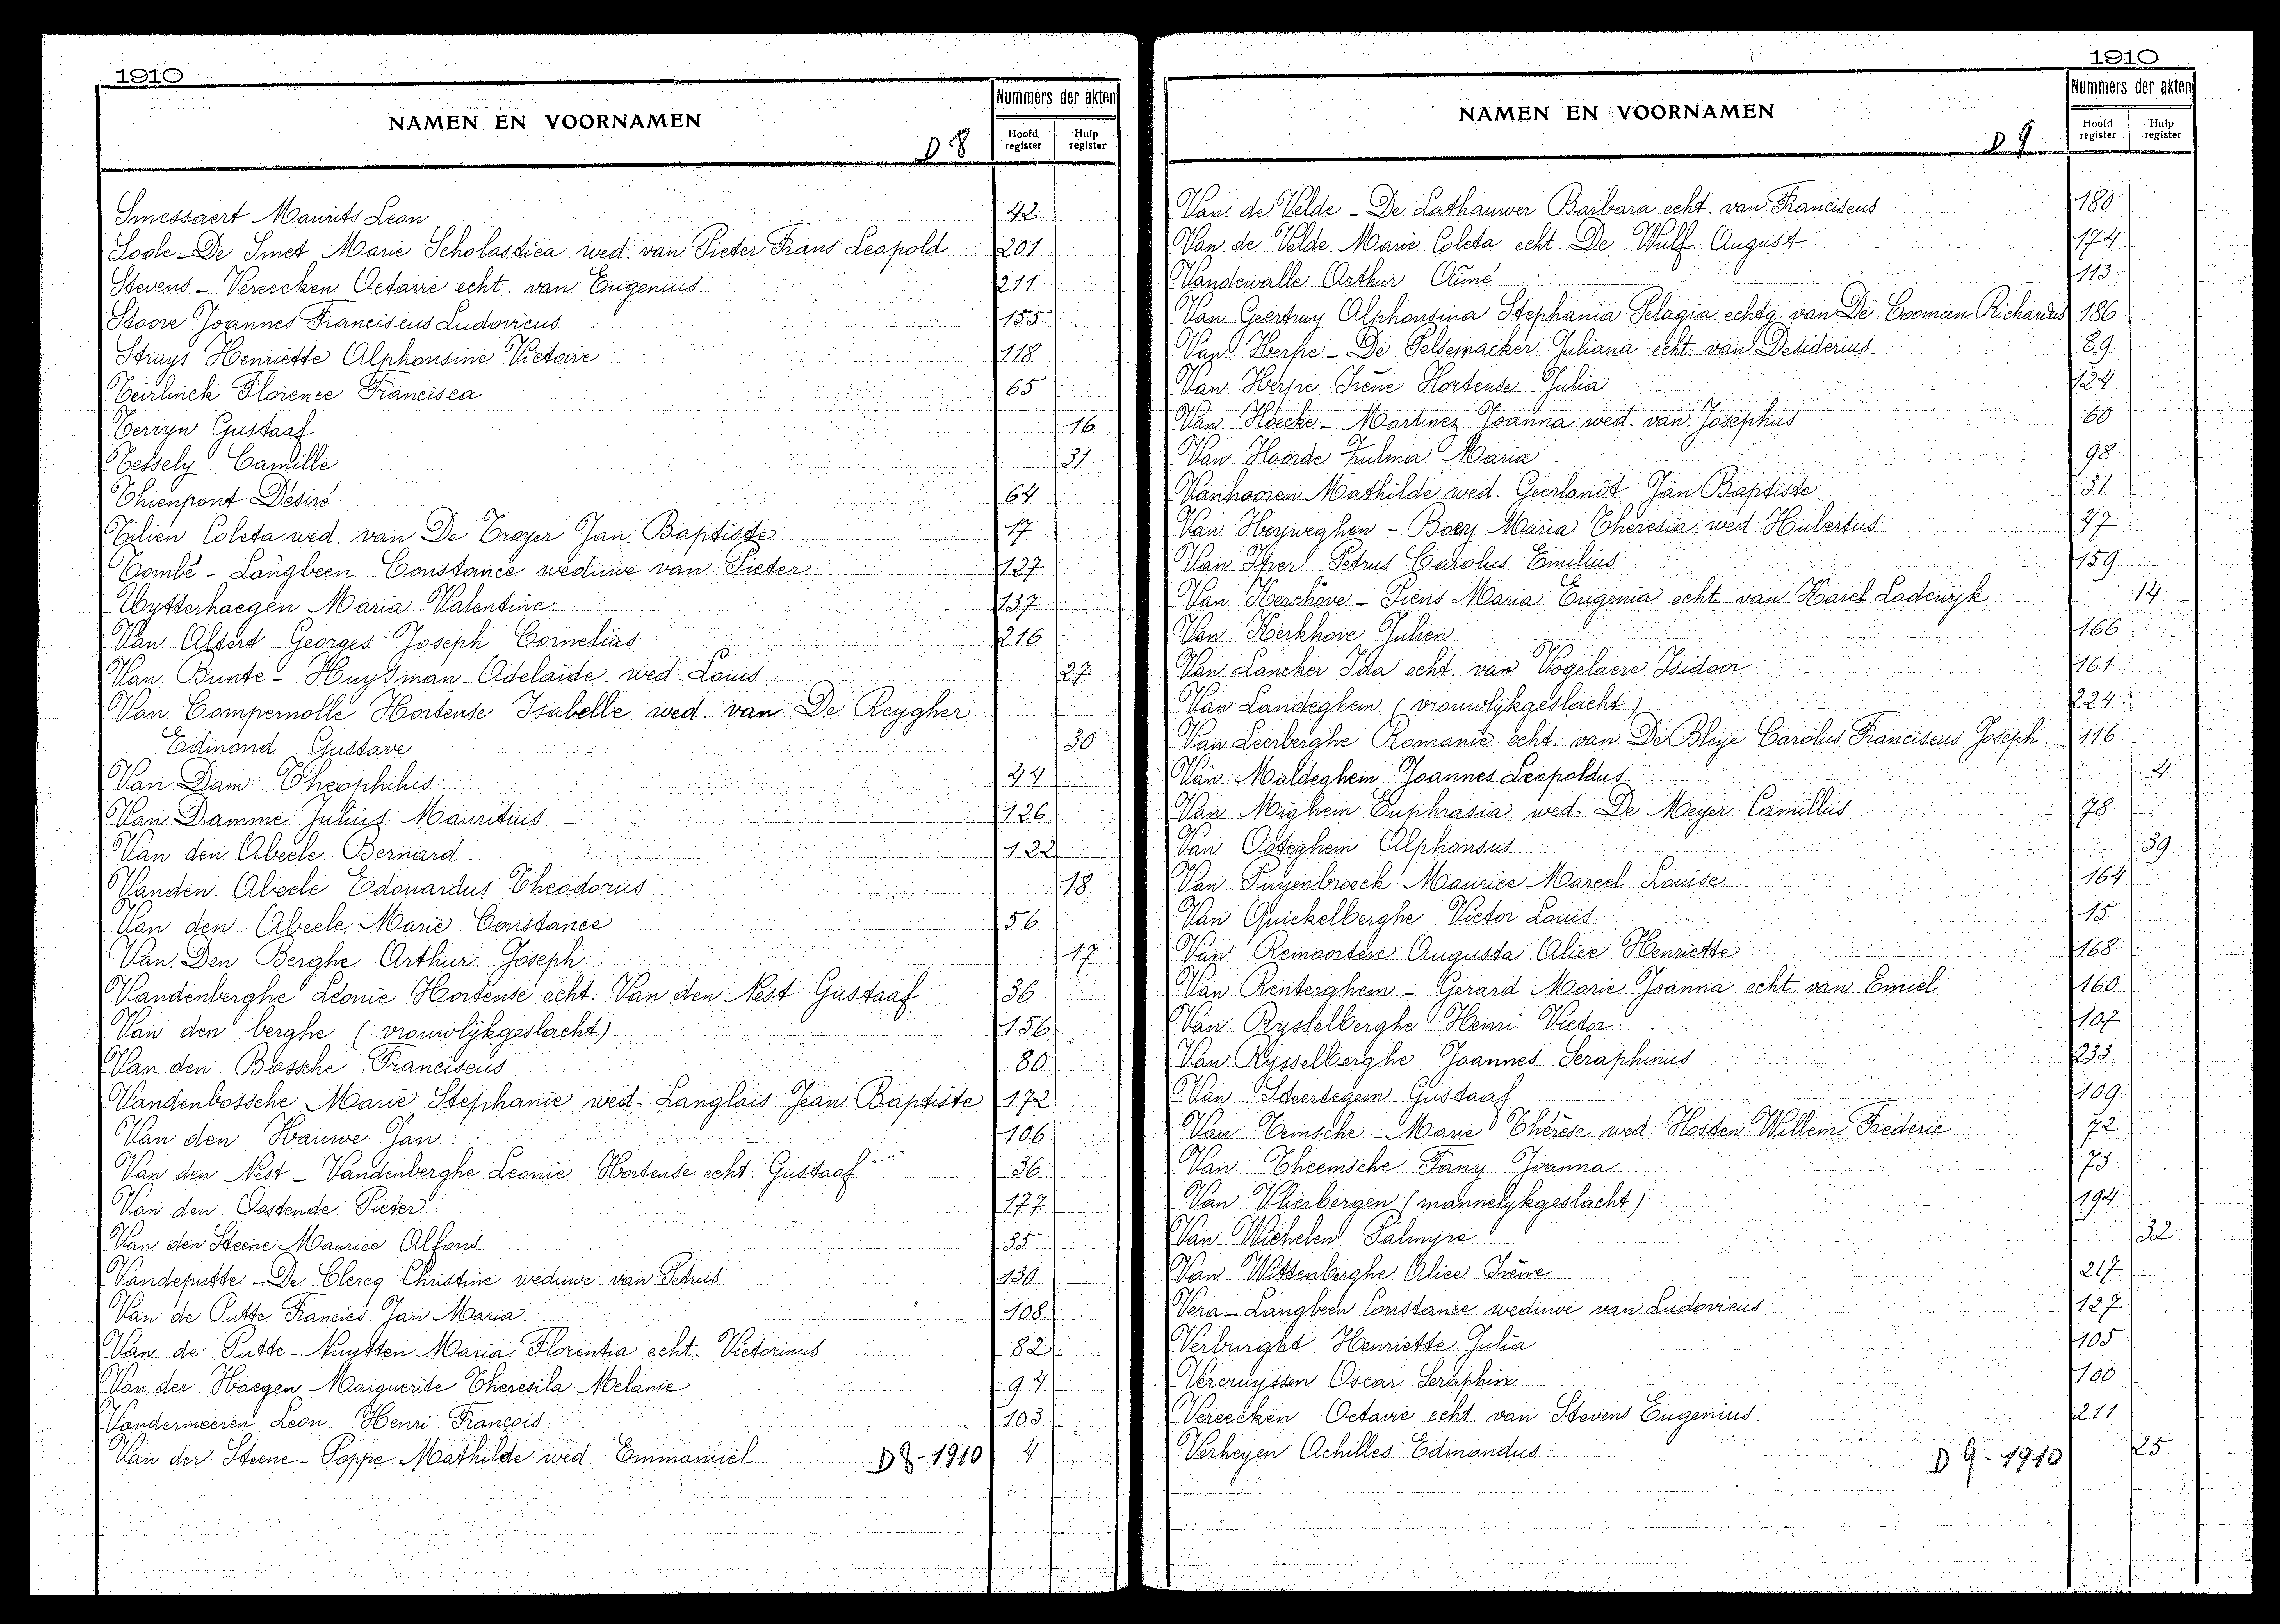 1910
NAMEN EN VOORNAMEN
D 8
Nummers der akten
Hoofd register
Hulp register
Smessaert Maurits Leon 42
Soole - De Smet Marie Scholastica wed. van Pieter Frans Leopold 201
Stevens - Vereecken Octavie echt. van Eugenius 211
Stoove Joannes Franciscus Ludovicus 155
Struys Henriette Alphonsine Victoire 118
Teirlinck Florence Francisca 65
Terryn Gustaaf 16
Tessely Camille 31
Thienpont Désiré 64
Tilien Coleta wed. van De Troyer Jan Baptiste 17
Tombé - Langbeen Constance weduwe van Pieter 127
Uytterhaegen Maria Valentine 137
Van Alferd Georges Joseph Cornelius 216
Van Bunte - Huysman Adelaïde wed. Louis 27
Van Compernolle Hortense Isabelle wed. van De Reygher
Edmond Gustave 30
Van Dam Theophilus 44
Van Damme Julius Mauritius 126
Van den Abeele Bernard 122
Vanden Abeele Edouardus Theodorus 18
Van den Abeele Marie Constance 56
Van Den Berghe Arthur Joseph 17
Vandenberghe Léonie Hortense echt. Van den Nest Gustaaf 36
Van den berghe (vrouwlijkgeslacht) 156
Van den Bossche Franciscus 80
Vandenbossche Marie Stephanie wed. Langlais Jean Baptiste 172
Van den Hauwe Jan 106
Van den Nest - Vandenberghe Leonie Hortense echt. Gustaaf 36
Van den Oostende Pieter 177
Van den Steene Maurice Alfons 35
Vandeputte - De Clercq Christine weduwe van Petrus 130
Van de Putte Francies Jan Maria 108
Van de Putte - Nuytten Maria Florentia echt. Victorinus 82
Van der Haegen Marguerite Theresila Melanie 94
Vandermeeren Leon Henri François 103
Van der Steene - Poppe Mathilde wed. Emmanuël 4
D 8 - 1910
1910
NAMEN EN VOORNAMEN
D 9
Nummers der akten
Hoofd register
Hulp register
Van de Velde - De Lathauwer Barbara echt. van Franciscus 180
Van de Velde Marie Coleta echt. De Wulf August 174
Vandewalle Arthur Aimé 113
Van Geertruy Alphonsina Stephania Pelagia echtg. van De Cooman Richardus 186
Van Herpe - De Pelsemacker Juliana echt. van Desiderius 89
Van Herpe Irène Hortense Julia 124
Van Hoecke - Martinez Joanna wed. van Josephus 60
Van Hoorde Zulma Maria 98
Vanhooren Mathilde wed. Geerlandt Jan Baptiste 31
Van Hoyweghen - Boey Maria Theresia wed. Hubertus 47
Van Iper Petrus Carolus Emilius 159
Van Kerchove - Piens Maria Eugenia echt. van Karel Lodewijk 14
Van Kerkhove Julien 166
Van Lancker Ida echt. van Vogelaere Isidoor 161
Van Landeghem (vrouwlijkgeslacht) 224
Van Leerberghe Romanie echt. van De Bleye Carolus Franciscus Joseph 116
Van Maldeghem Joannes Leopoldus 4
Van Mighem Euphrasia wed. De Meyer Camillus 78
Van Osteghem Alphonsus 39
Van Puyenbroeck Maurice Marcel Louise 164
Van Quickelberghe Victor Louis 15
Van Remoortere Augusta Alice Henriette 168
Van Renterghem - Gerard Marie Joanna echt. van Emiel 160
Van Rysselberghe Henri Victor 107
Van Rysselberghe Joannes Seraphinus 233
Van Steertegem Gustaaf 109
Van Temsche Marie Thérèse wed. Hosten Willem Frederic 72
Van Theemsche Fany Joanna 73
Van Vlierbergen (mannelijkgeslacht) 194
Van Wichelen Palmyre 32
Van Wittenberghe Alice Irène 217
Vera - Langbeen Constance weduwe van Ludovicus 127
Verburght Henriette Julia 105
Vercruyssen Oscar Seraphin 100
Vereecken Octavie echt. van Stevens Eugenius 211
Verheyen Achilles Edmondus 25
D 9 - 1910